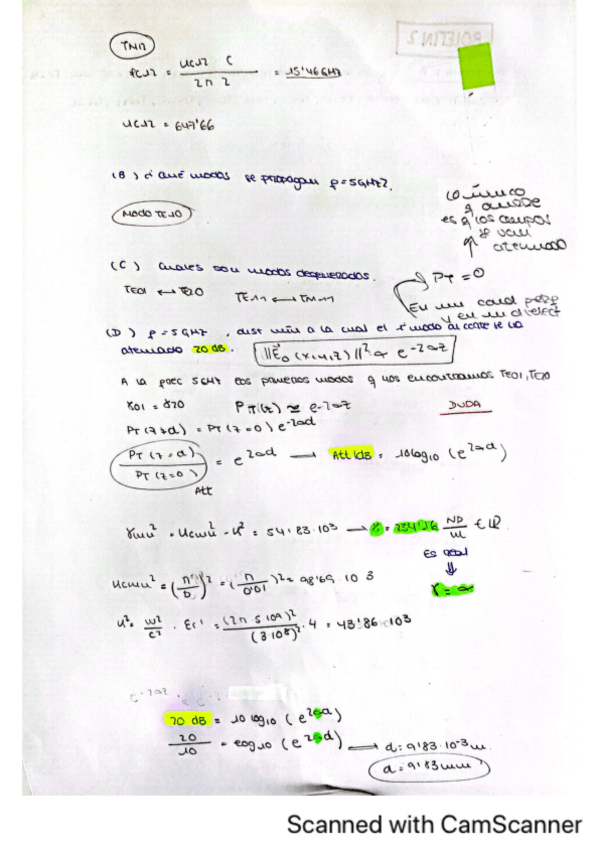 BOLETIN 2
TM11
fc12 = uc12 · C / 2π 2 = 15'46 GHz
uc12 = 647'66
(B) ¿ qué modos se propagan f=5GHz?
MODO TE10
Lo único
q ocurre
es q los campos
se van
atenuando
(C) Cuáles son modos degenerados.
TE01 ↔ TE20
TE11 ↔ TM11
PT = 0
En un cond perf
y en un dielect
(D) f=5GHz , dist min a la cual el 1º modo al corte se ve
atenuado 20 dB.
||E0 (x,y,z)||² ∝ e^-2αz
A la frec 5GHz los primeros modos q nos encontramos TE01, TE20
γ01 = γ20
PT(z) ≃ e^-2αz
DUDA
PT (z=d) = PT (z=0) e^-2αd
PT (z=d) / PT (z=0) = e^2αd → Att|dB = 10log10 (e^2αd)
Att
γmn² = ucmn² - u² = 54'83·10^3 → γ = 234'16 NP/m ∈ ℝ
Es real
⇓
γ = α
ucmn² = (π/b)² = (π/0'01)² = 98'69·10^3
u² = ω²/c² · εr' = (2π·5·10^9)²/(3·10^8)² · 4 = 43'86·10^3
e^-2αz
20 dB = 10 log10 (e^2αd)
20/10 = log10 (e^2αd) → d = 9'83·10^-3 m.
d = 9'83 mm
Scanned with CamScanner